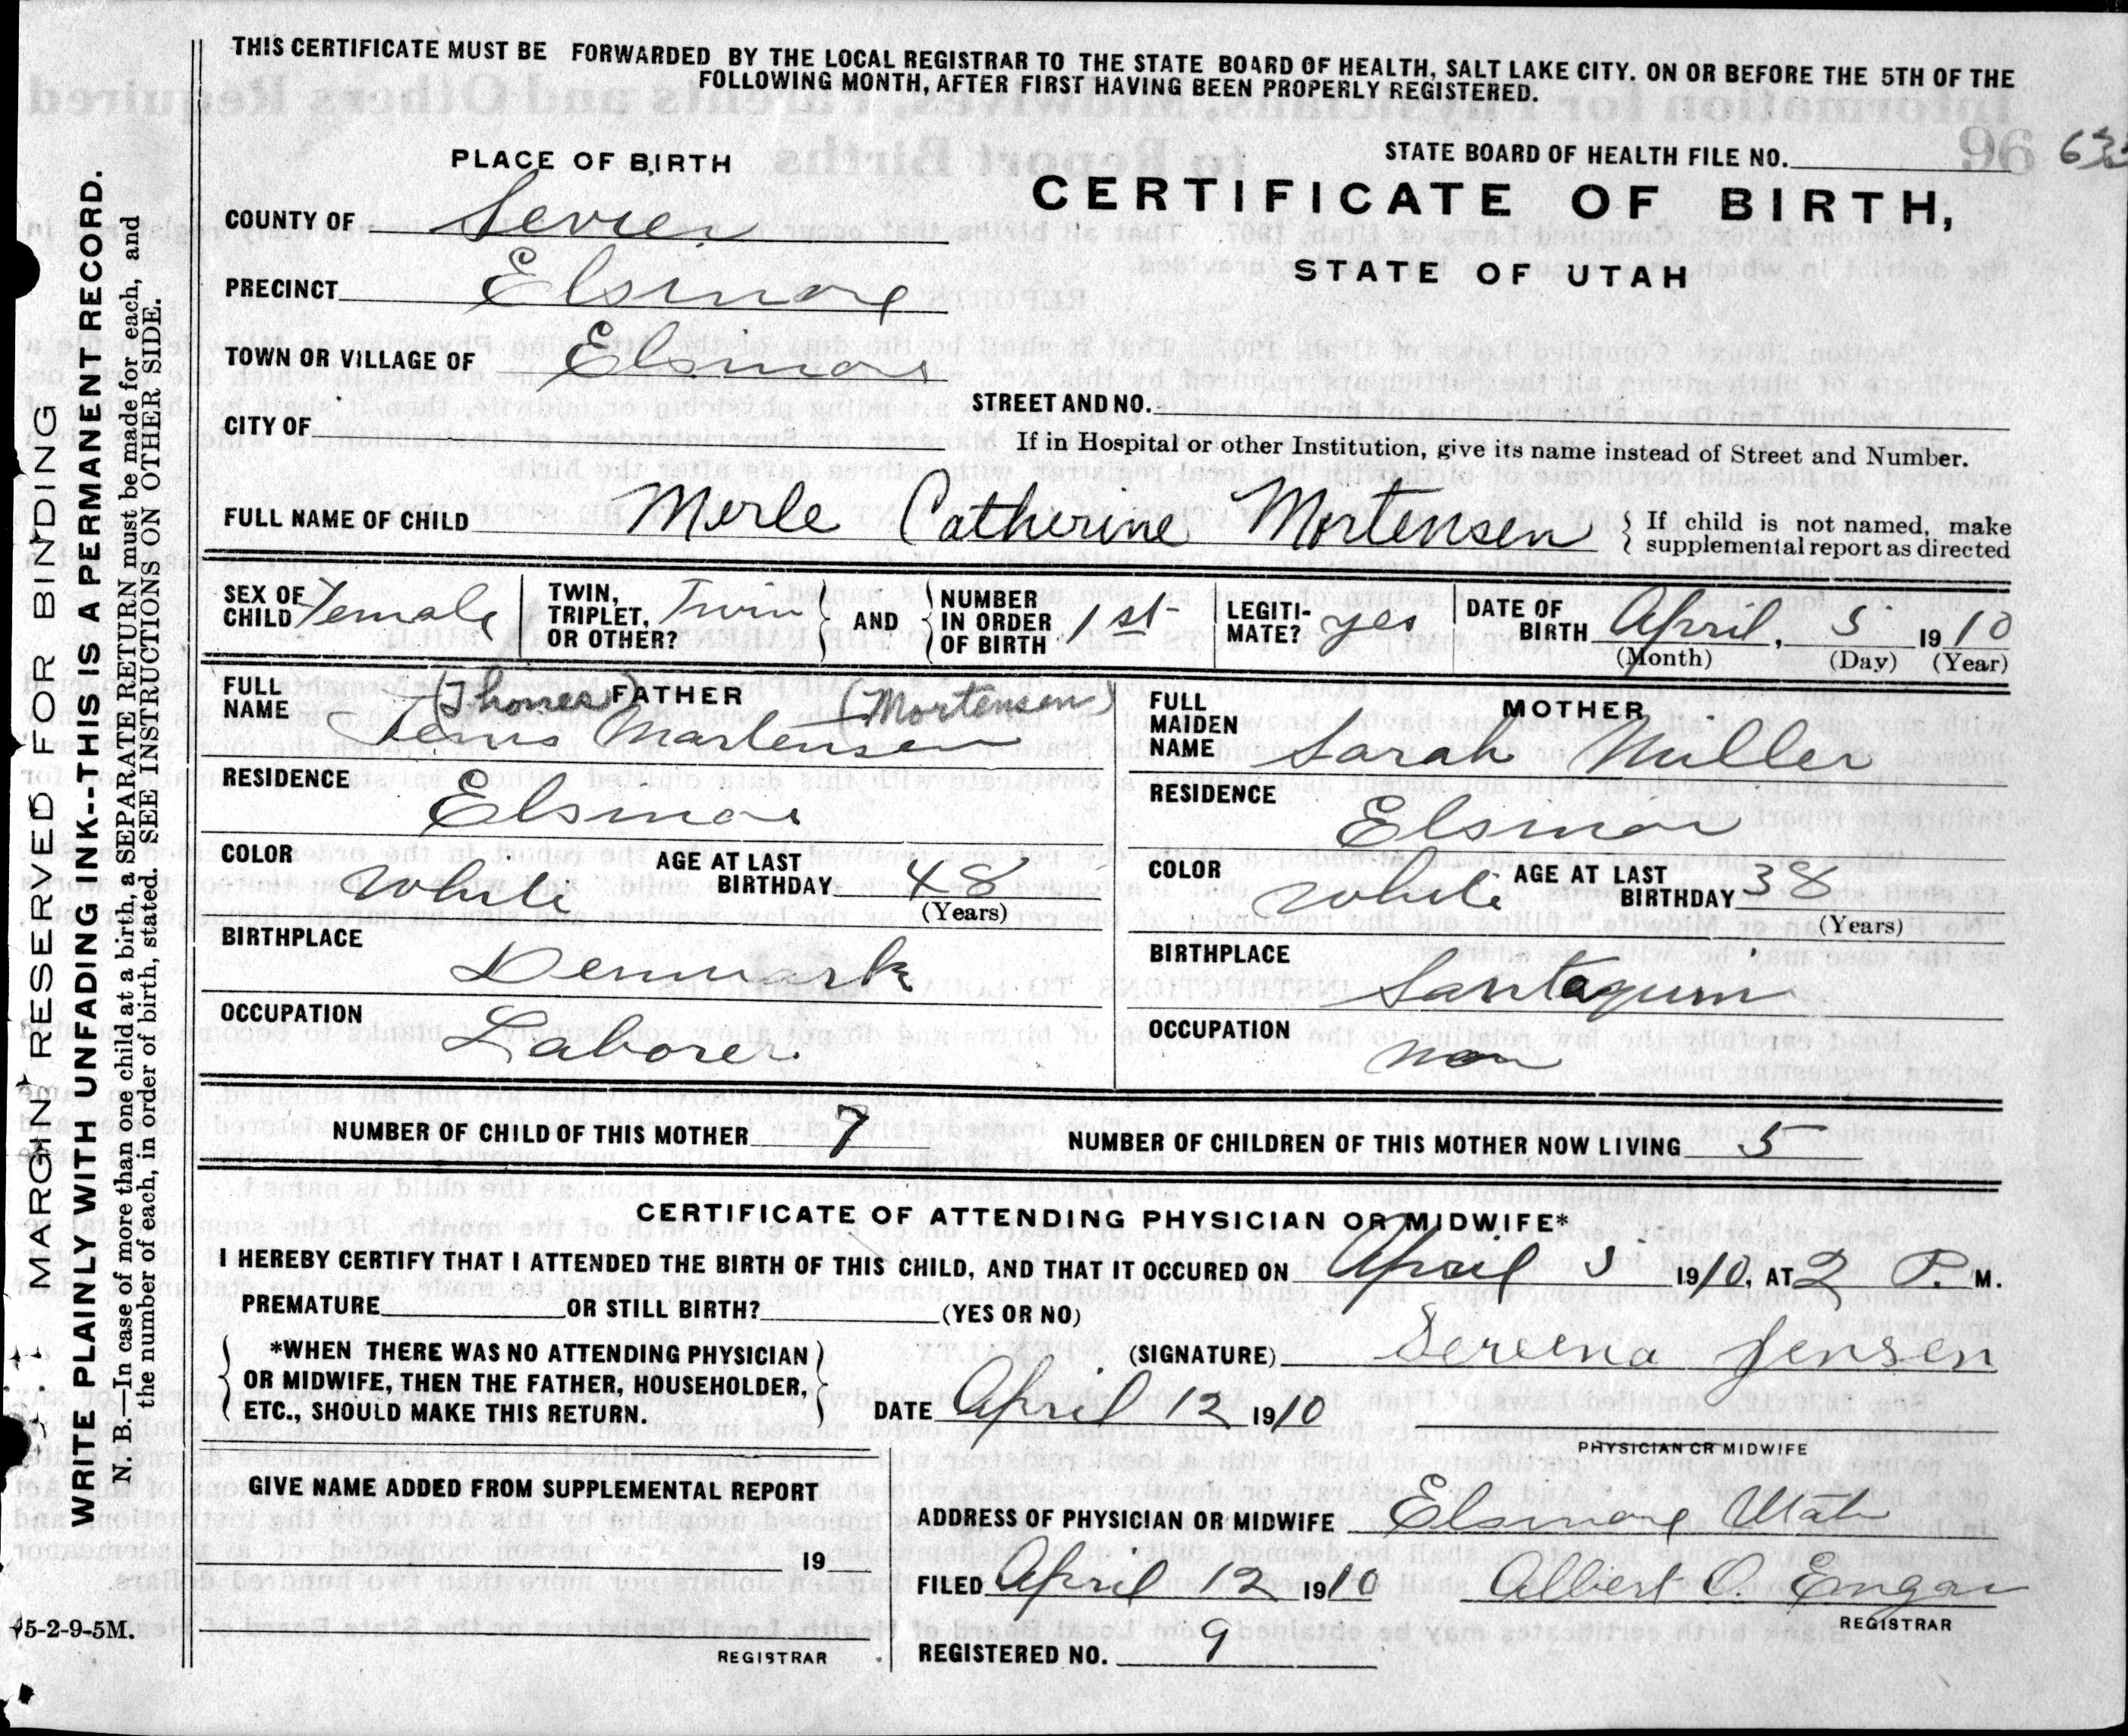 THIS CERTIFICATE MUST BE FORWARDED BY THE LOCAL REGISTRAR TO THE STATE BOARD OF HEALTH, SALT LAKE CITY. ON OR BEFORE THE 5TH OF THE
FOLLOWING MONTH, AFTER FIRST HAVING BEEN PROPERLY REGISTERED.
STATE BOARD OF HEALTH FILE NO.
PLACE OF BIRTH
CERTIFICATE OF BIRTH,
STATE OF UTAH
COUNTY OF Sevier
PRECINCT Elsinore
TOWN OR VILLAGE OF Elsinore
STREET AND NO.
CITY OF
If in Hospital or other Institution, give its name instead of Street and Number.
FULL NAME OF CHILD Merle Catherine Mortensen { If child is not named, make
supplemental report as directed
SEX OF CHILD Female
TWIN, TRIPLET, OR OTHER? Twin } AND { NUMBER IN ORDER OF BIRTH 1st
LEGITI-MATE? yes
DATE OF BIRTH April, 5 1910
(Month) (Day) (Year)
FATHER
(Mortensen)
FULL NAME Martensen
RESIDENCE Elsinor
COLOR White AGE AT LAST BIRTHDAY 48
(Years)
BIRTHPLACE Denmark
OCCUPATION Laborer
MOTHER
FULL MAIDEN NAME Sarah Muller
RESIDENCE Elsinor
COLOR White AGE AT LAST BIRTHDAY 38
(Years)
BIRTHPLACE Santaquin
OCCUPATION
NUMBER OF CHILD OF THIS MOTHER 7 NUMBER OF CHILDREN OF THIS MOTHER NOW LIVING 5
CERTIFICATE OF ATTENDING PHYSICIAN OR MIDWIFE*
I HEREBY CERTIFY THAT I ATTENDED THE BIRTH OF THIS CHILD, AND THAT IT OCCURED ON April 5 1910, AT 2 P. M.
PREMATURE OR STILL BIRTH? (YES OR NO)
{ *WHEN THERE WAS NO ATTENDING PHYSICIAN
OR MIDWIFE, THEN THE FATHER, HOUSEHOLDER,
ETC., SHOULD MAKE THIS RETURN. }
(SIGNATURE) Sereena Jensen
DATE April 12 1910
PHYSICIAN OR MIDWIFE
GIVE NAME ADDED FROM SUPPLEMENTAL REPORT
19
REGISTRAR
ADDRESS OF PHYSICIAN OR MIDWIFE Elsinore Utah
FILED April 12 1910 Albert O.
REGISTRAR
REGISTERED NO. 9
MARGIN RESERVED FOR BINDING
WRITE PLAINLY WITH UNFADING INK--THIS IS A PERMANENT RECORD.
N. B.—In case of more than one child at a birth, a SEPARATE RETURN must be made for each, and
the number of each, in order of birth, stated. SEE INSTRUCTIONS ON OTHER SIDE.
5-2-9-5M.